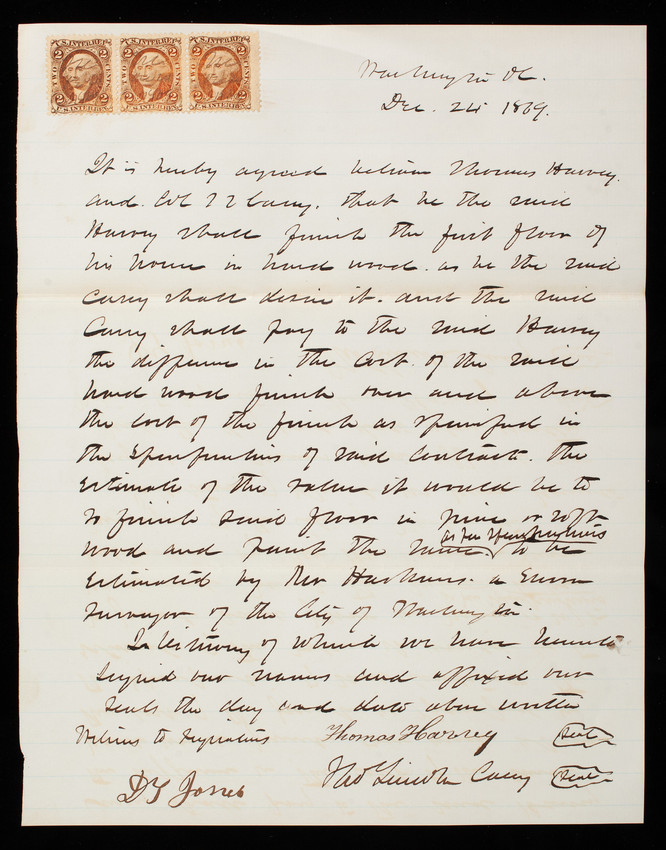 U.S. INTER. REV. U.S. INTER. REV. U.S. INTER. REV.
2 2 2 2 2 2
TWO CENTS TWO CENTS TWO CENTS
2 2 2 2 2 2
U.S. INTER. REV. U.S. INTER. REV. U.S. INTER. REV.
Washington DC.
Dec. 24 1869.
It is hereby agreed between Thomas Harvey.
and Col T L Casey. that he the said
Harvey shall finish the first floor of
his house in hard wood. as he the said
Casey shall desire it. and the said
Casey shall pay to the said Harvey
the difference in the cost of the said
hard wood finish over and above
the cost of the finish as specified in
the Specifications of said contract. the
Estimate of the value it would be to
to finish said floor in pine or soft
as per specifications
wood and paint the same, to be
Estimated by Mr a Sworn
Surveyor of the City of Washington.
In testimony of which we have hereunto
signed our names and affixed our
seals the day and date above written
Witness to signatures Thomas Harvey Seal
Thos Lincoln Casey Seal
D T Jones